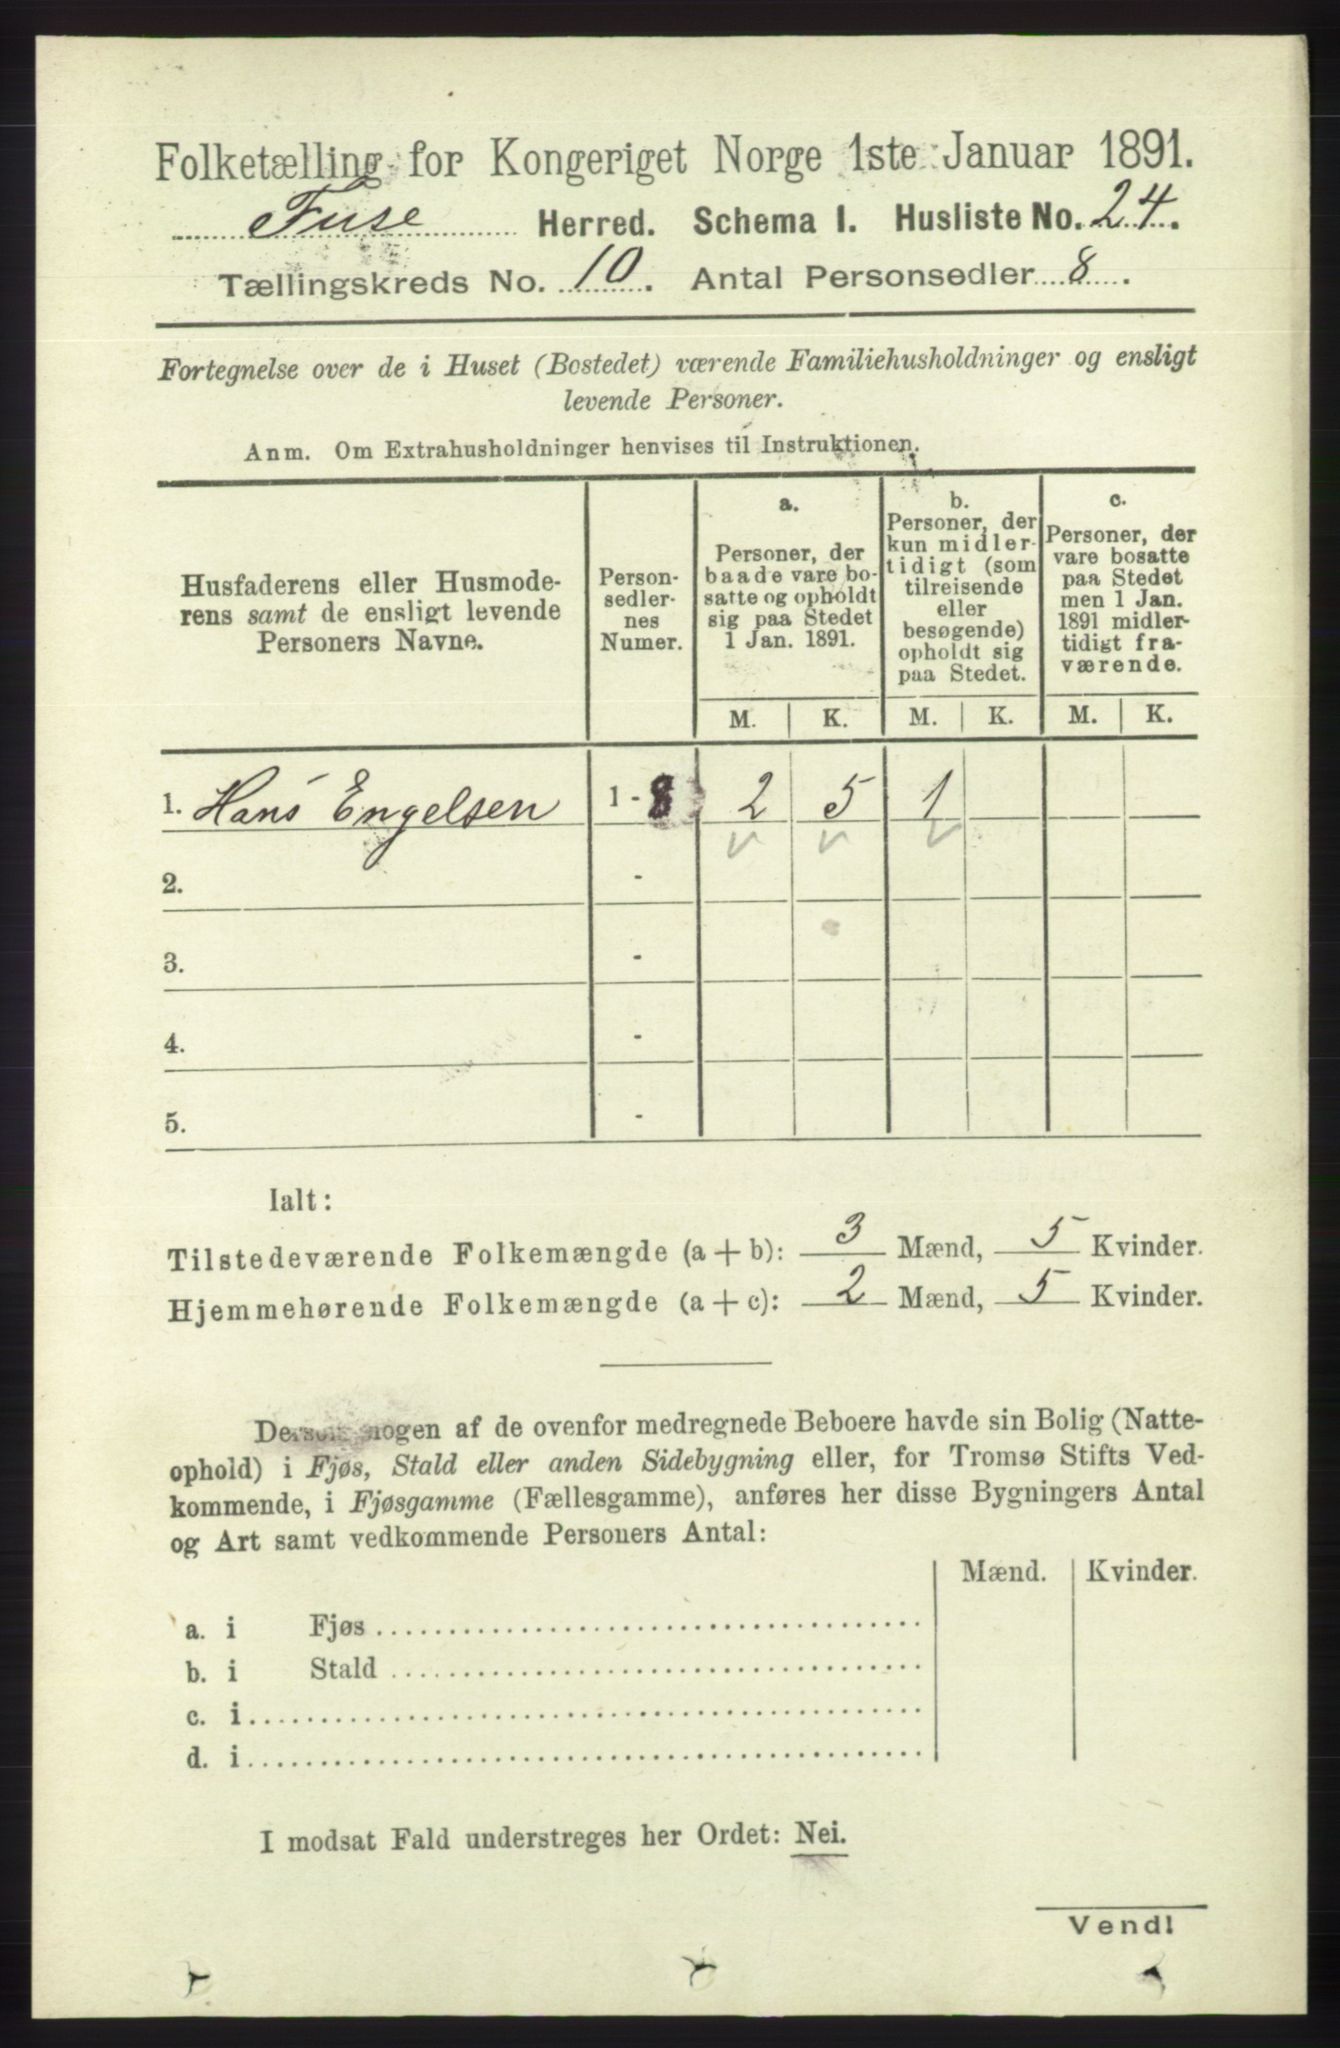 Folketælling for Kongeriget Norge 1ste Januar 1891.
Fuse Herred. Schema I. Husliste No. 24.
Tællingskreds No. 10. Antal Personsedler 8.
Fortegnelse over de i Huset (Bostedet) værende Familiehusholdninger og ensligt
levende Personer.
Anm. Om Extrahusholdninger henvises til Instruktionen.
Husfaderens eller Husmode-
rens samt de ensligt levende
Personers Navne.
Person-
sedler-
nes
Numer.
a.
Personer, der
baade vare bo-
satte og opholdt
sig paa Stedet
1 Jan. 1891.
b.
Personer, der
kun midler-
tidigt (som
tilreisende
eller
besøgende)
opholdt sig
paa Stedet.
c.
Personer, der
vare bosatte
paa Stedet
men 1 Jan.
1891 midler-
tidigt fra-
værende.
M. K. M. K. M. K.
1. Hans Engelsen 1 - 8 2 5 1
2. -
3. -
4. -
5. -
Ialt:
Tilstedeværende Folkemængde (a + b): 3 Mænd, 5 Kvinder.
Hjemmehørende Folkemængde (a + c): 2 Mænd, 5 Kvinder.
Dersom nogen af de ovenfor medregnede Beboere havde sin Bolig (Natte-
ophold) i Fjøs, Stald eller anden Sidebygning eller, for Tromsø Stifts Ved-
kommende, i Fjøsgamme (Fællesgamme), anføres her disse Bygningers Antal
og Art samt vedkommende Personers Antal:
Mænd. Kvinder.
a. i Fjøs
b. i Stald
c. i
d. i
I modsat Fald understreges her Ordet: Nei.
Vend!